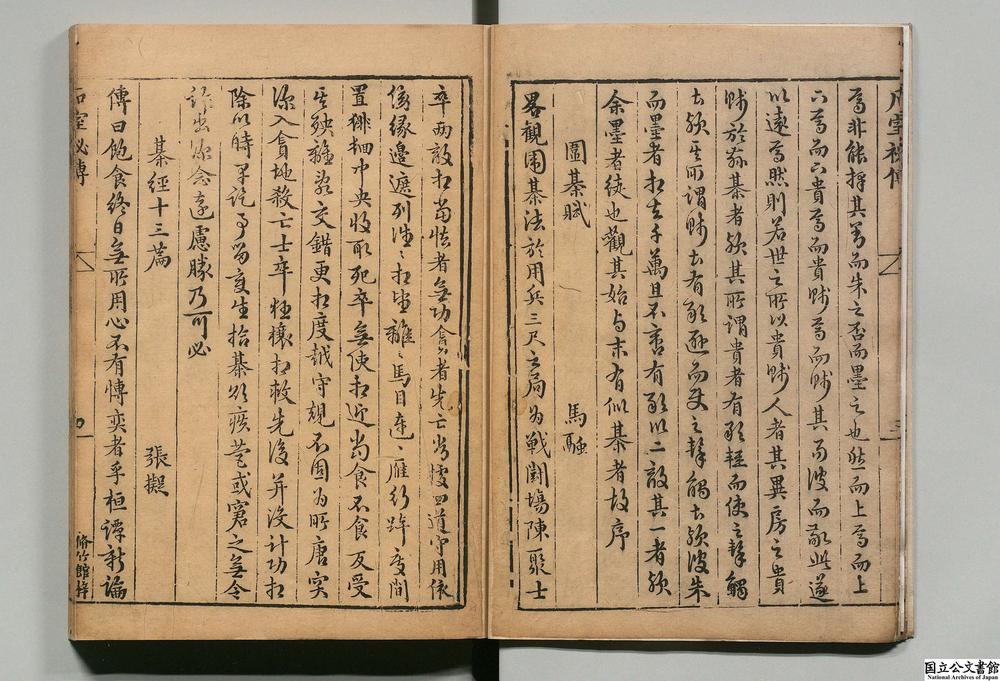 石室秘傳
三
焉非能擇其善而朱之否而墨之也然而上焉而上
下焉而下貴焉而貴賤焉而賤其易彼而敬此遂
以遠焉然則若世之所以貴賤人者其異房之貴
賤於茲棊者歟其所謂貴者有敢輕而使之擊觸
者歟其所謂賤者有敢避而使之擊觸者歟彼朱
而墨者相去千萬且不啻有敢以二敵其一者歟
余墨者徒也觀其始與末有似棊者故序
圍棊賦 馬融
畧觀圍棊法於用兵三尺之局為戰鬭塲陳聚士
卒兩敵相當怯者無功貪者先亡先據四道守用依
傍緣邊遮列往〻相望離〻馬目連〻雁行踔度間
置徘徊中央收取死卒無使相迎當食不食反受
其殃離亂交錯更相度越守規不固為所唐突
深入貪地殺亡士卒狂攘相救先後并沒計功相
除以時早訖事留變生拾棊欲疾營惑窘乏無令
詐出深念遠慮勝乃可必
棊經十三篇 張擬
傳曰飽食終日無所用心不有博奕者乎桓譚新論
石室秘傳
四
脩竹館梓
国立公文書館
National Archives of Japan